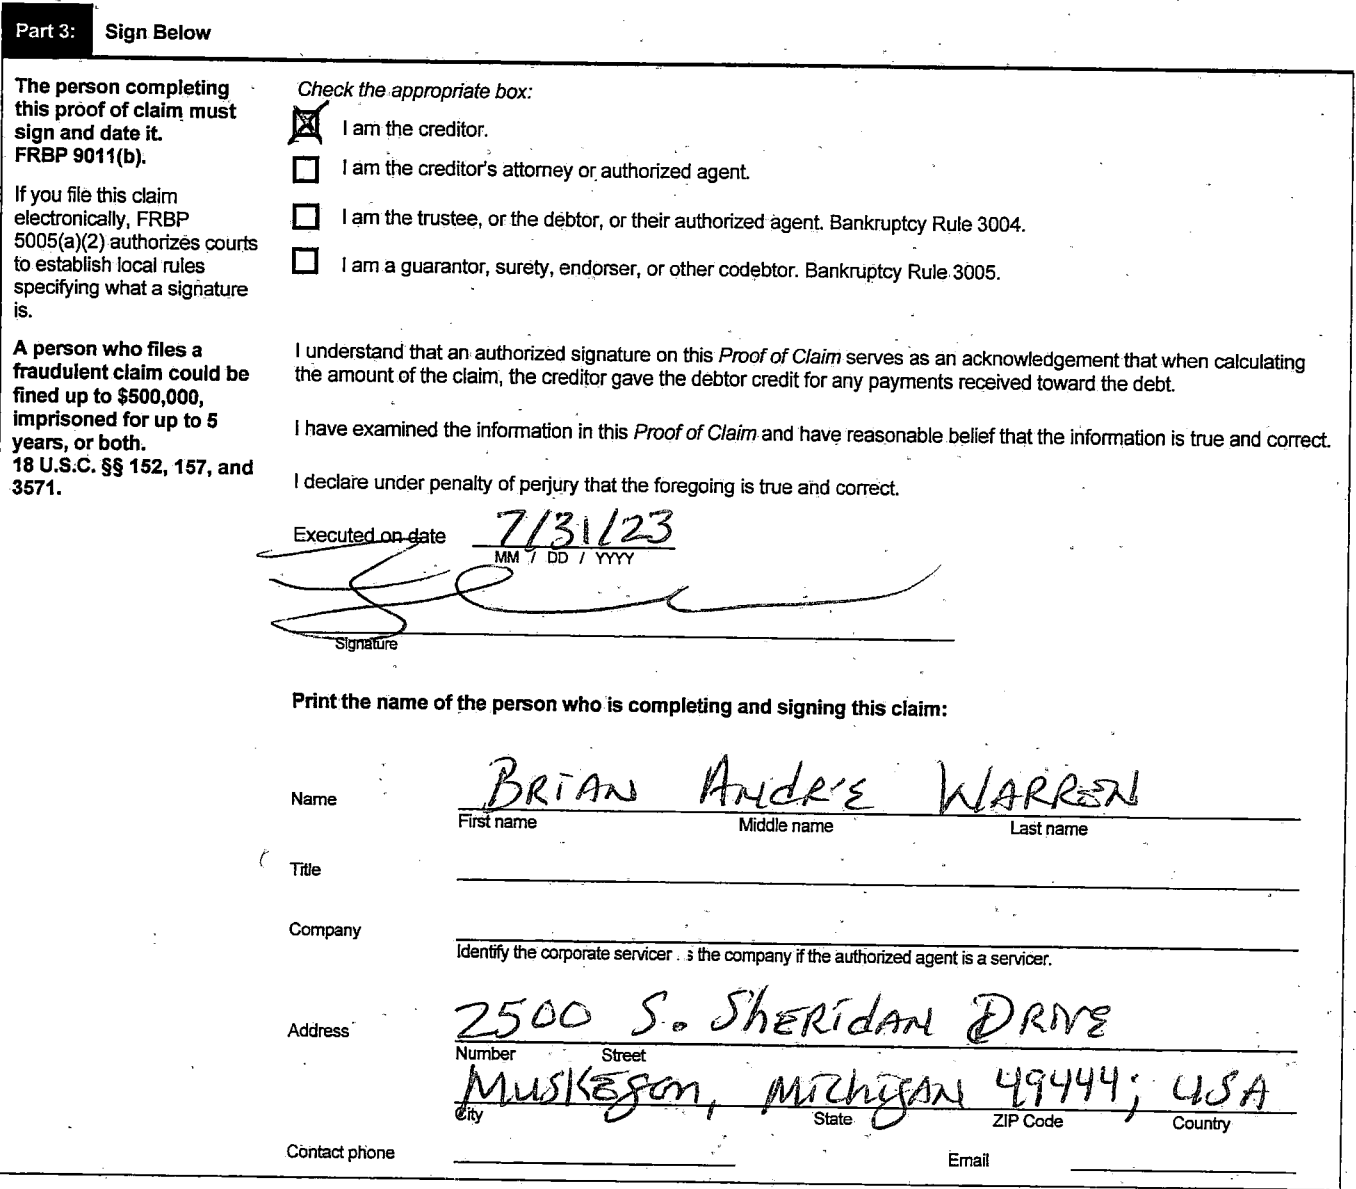 Part 3: Sign Below
The person completing
this proof of claim must
sign and date it.
FRBP 9011(b).
If you file this claim
electronically, FRBP
5005(a)(2) authorizes courts
to establish local rules
specifying what a signature
is.
A person who files a
fraudulent claim could be
fined up to $500,000,
imprisoned for up to 5
years, or both.
18 U.S.C. §§ 152, 157, and
3571.
Check the appropriate box:
I am the creditor.
I am the creditor's attorney or authorized agent.
I am the trustee, or the debtor, or their authorized agent. Bankruptcy Rule 3004.
I am a guarantor, surety, endorser, or other codebtor. Bankruptcy Rule 3005.
I understand that an authorized signature on this Proof of Claim serves as an acknowledgement that when calculating
the amount of the claim, the creditor gave the debtor credit for any payments received toward the debt.
I have examined the information in this Proof of Claim and have reasonable belief that the information is true and correct.
I declare under penalty of perjury that the foregoing is true and correct.
Executed on date 7/31/23
MM / DD / YYYY
Signature
Print the name of the person who is completing and signing this claim:
Name BRIAN ANDR'E WARREN
First name Middle name Last name
Title
Company
Identify the corporate servicer s the company if the authorized agent is a servicer.
Address 2500 S. SHERIDAN DRIVE
Number Street
MUSKEGON, MICHIGAN 49444; USA
City State ZIP Code Country
Contact phone Email